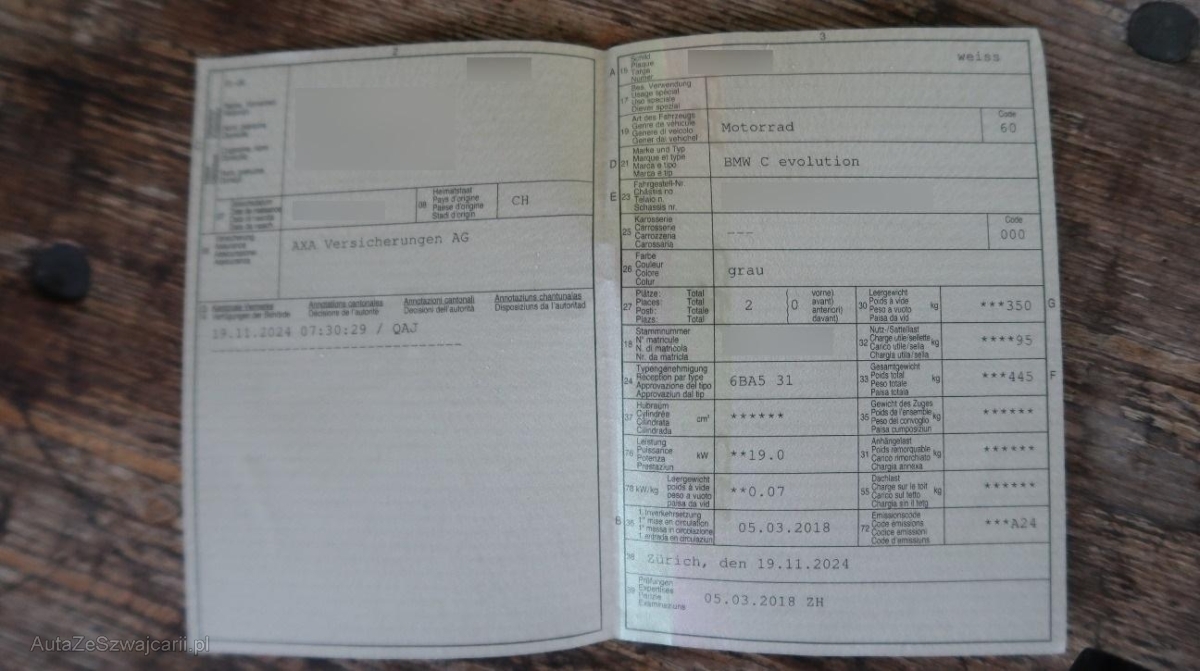 2
Heimatstaat
Pays d'origine
Paese d'origine
Stadi d'origin
08
CH
AXA Versicherungen AG
Annotations cantonales
Annotazioni cantonali
Annotaziuns chantunalas
Décisions de l'autorité
Decisioni dell'autorità
Disposiziuns da l'autoritad
19.11.2024 07:30:29 / QAJ
3
A 15
Schild
Plaque
Targa
Numer
weiss
17
Bes. Verwendung
Usage spécial
Uso speciale
Diever spezial
19
Art des Fahrzeugs
Genre de véhicule
Genere di veicolo
Gener dal vehichel
Motorrad
Code
60
D 21
Marke und Typ
Marque et type
Marca e tipo
Marca e tip
BMW C evolution
E 23
Fahrgestell-Nr.
Châssis no
Telaio n.
Schassis nr.
25
Karosserie
Carrosserie
Carrozzeria
Carossaria
---
Code
000
26
Farbe
Couleur
Colore
Colur
grau
27
Plätze: Total
Places: Total
Posti: Totale
Plazs: Total
2
( 0
vorne)
avant)
anteriori)
davant)
30
Leergewicht
Poids à vide
Peso a vuoto
Paisa da vid
kg
***350
G
18
Stammnummer
N° matricule
N. di matricola
Nr. da matricla
32
Nutz-/Sattellast
Charge utile/sellette
Carico utile/sella
Chargia utila/sella
kg
****95
24
Typengenehmigung
Réception par type
Approvazione del tipo
Approvaziun dal tip
6BA5 31
33
Gesamtgewicht
Poids total
Peso totale
Paisa totala
kg
***445
F
37
Hubraum
Cylindrée
Cilindrata
Cilindrada
cm³
******
35
Gewicht des Zuges
Poids de l'ensemble
Peso del convoglio
Paisa cumposiziun
kg
******
76
Leistung
Puissance
Potenza
Prestaziun
kW
**19.0
31
Anhängelast
Poids remorquable
Carico rimorchiato
Chargia annexa
kg
******
78 kW/kg
Leergewicht
poids à vide
peso a vuoto
paisa da vid
**0.07
55
Dachlast
Charge sur le toit
Carico sul tetto
Chargia sin il tetg
kg
******
B 36
1. Inverkehrsetzung
1re mise en circulation
1a messa in circolazione
1. entrada en circulaziun
05.03.2018
72
Emissionscode
Code émissions
Codice emissioni
Code d'emissiuns
***A24
38
Zürich, den 19.11.2024
39
Prüfungen
Expertises
Perizie
Examinaziuns
05.03.2018 ZH
AutaZeSzwajcarii.pl